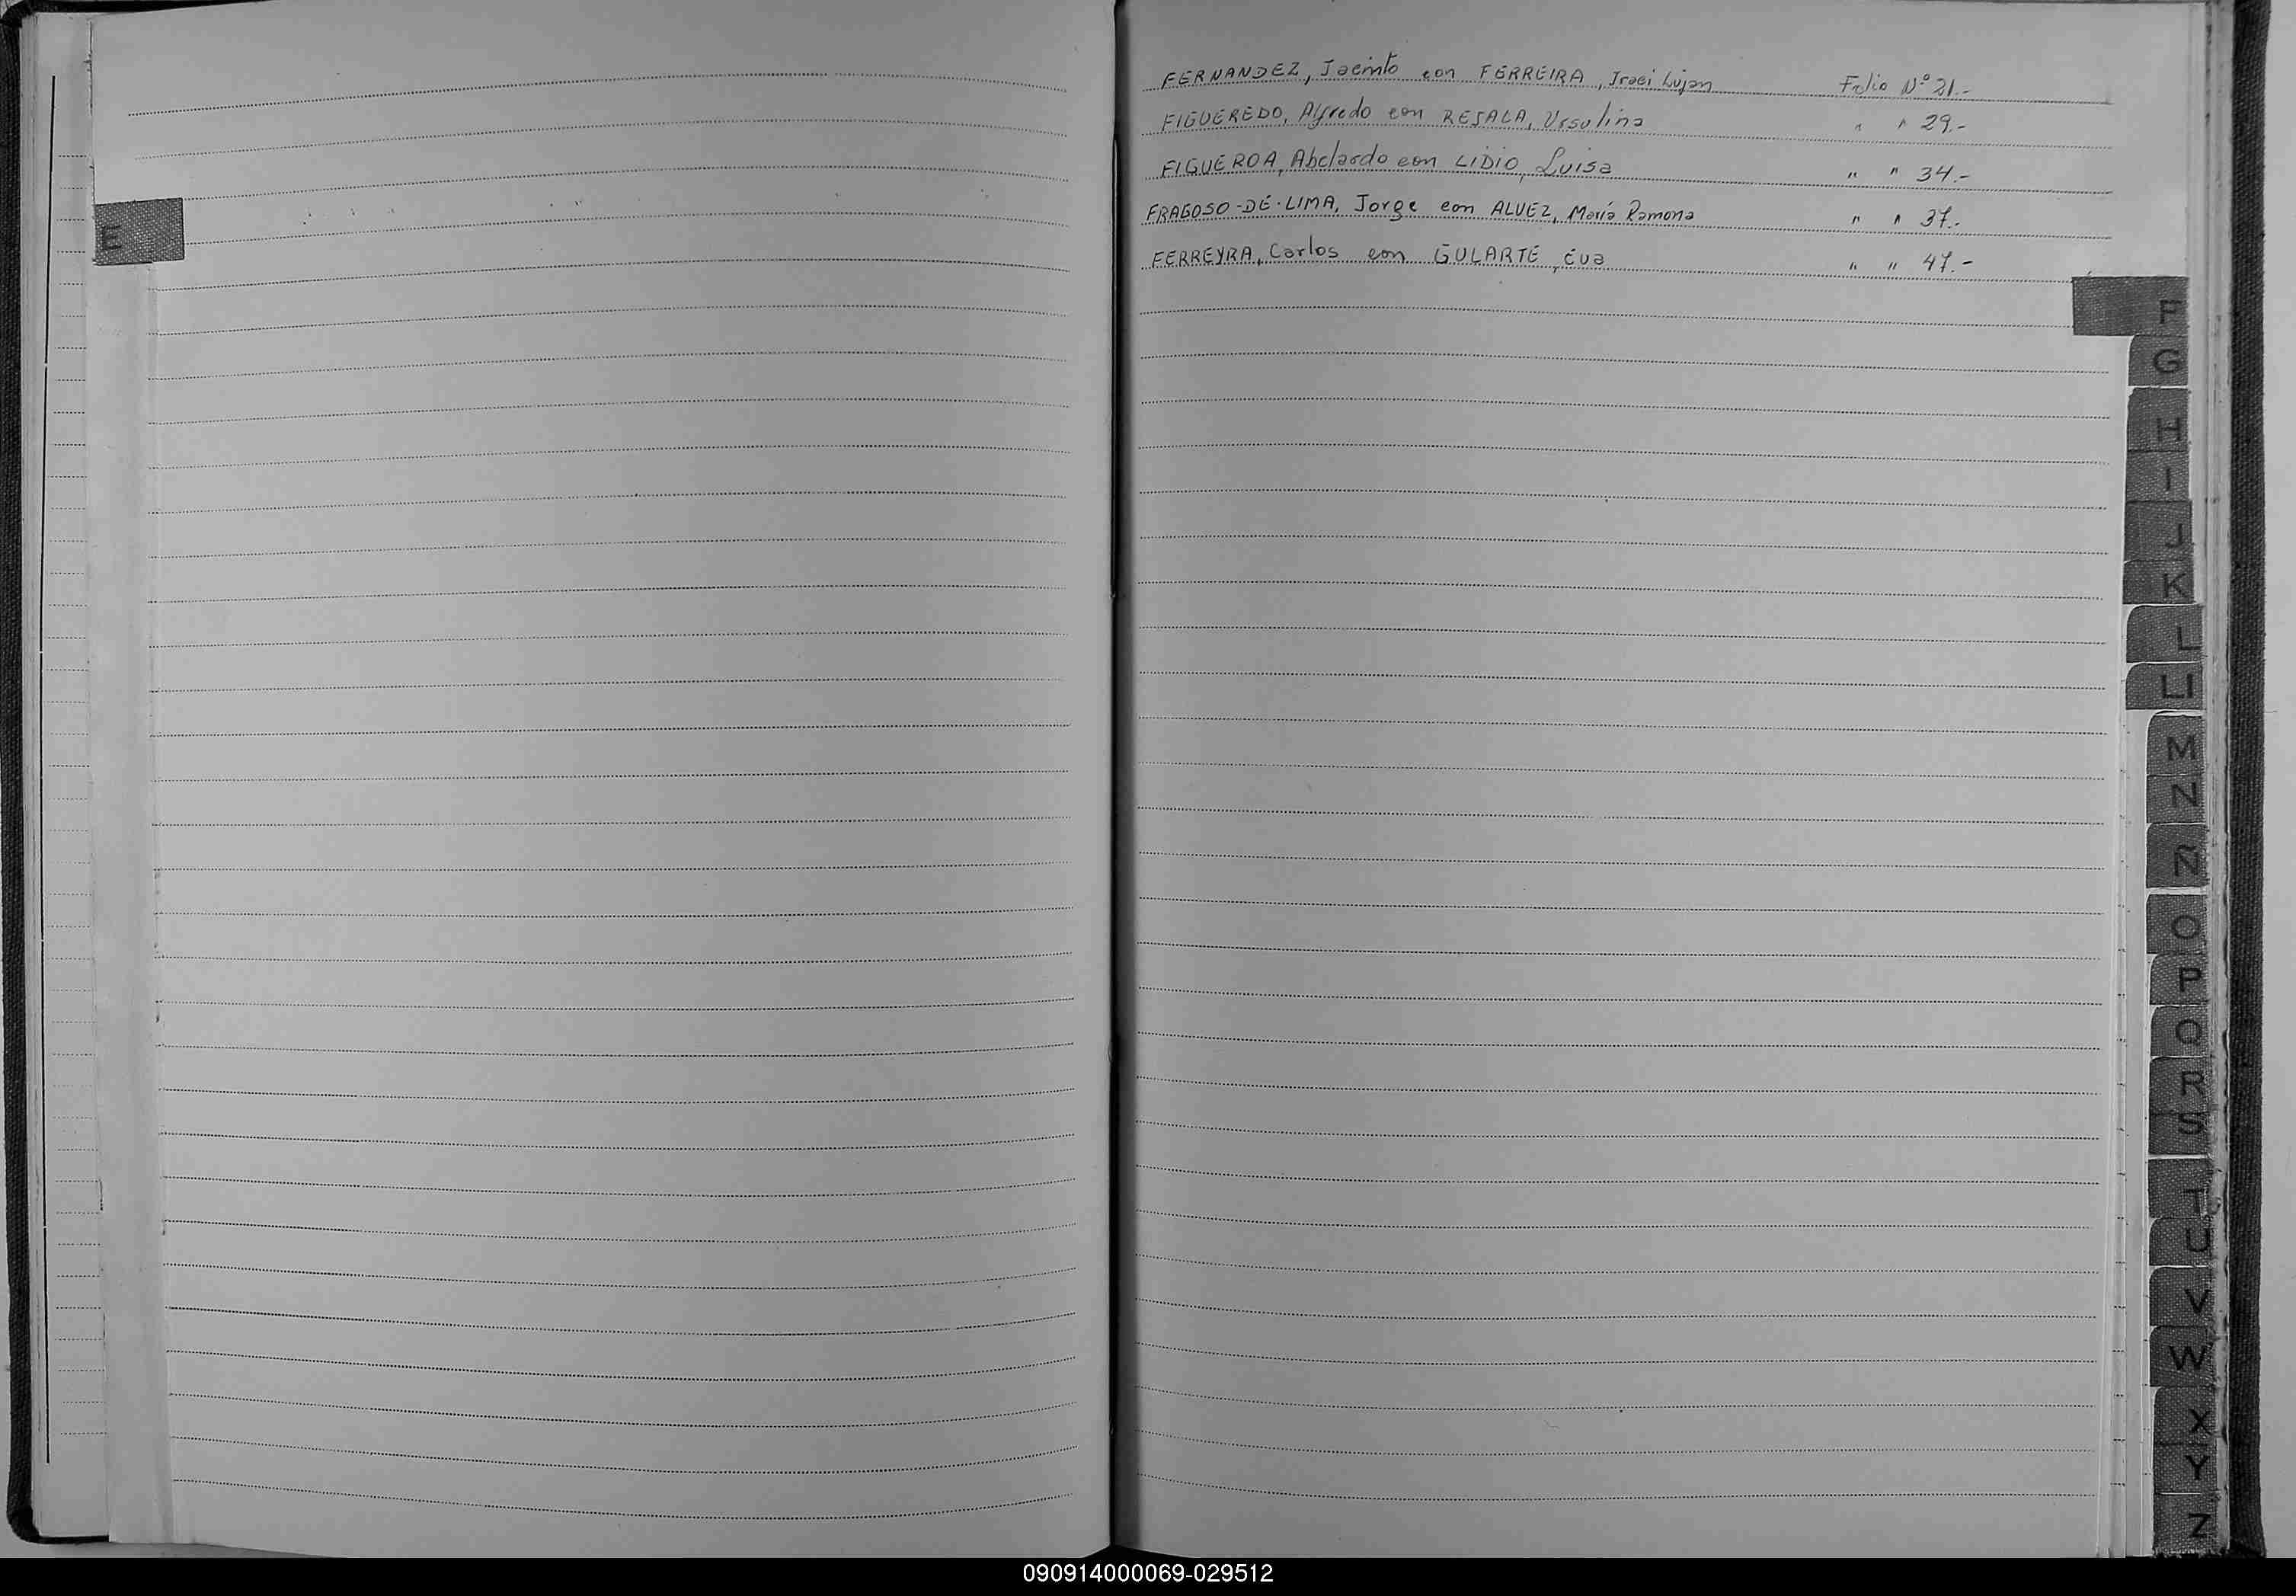 FERNANDEZ, Jacinto con FERREIRA, Iraci Lujan Folio Nº 21.-
FIGUEREDO, Alfredo con RESALA, Ursulina " " 29.-
FIGUEROA, Abelardo con LIDIO, Luisa " " 34.-
FRAGOSO-DE-LIMA, Jorge con ALVEZ, María Ramona " " 37.-
FERREYRA, Carlos con GULARTE, Eva " " 47.-
E
F
G
H
I
J
K
L
Ll
M
N
Ñ
O
P
Q
R
S
T
U
V
W
X
Y
Z
090914000069-029512